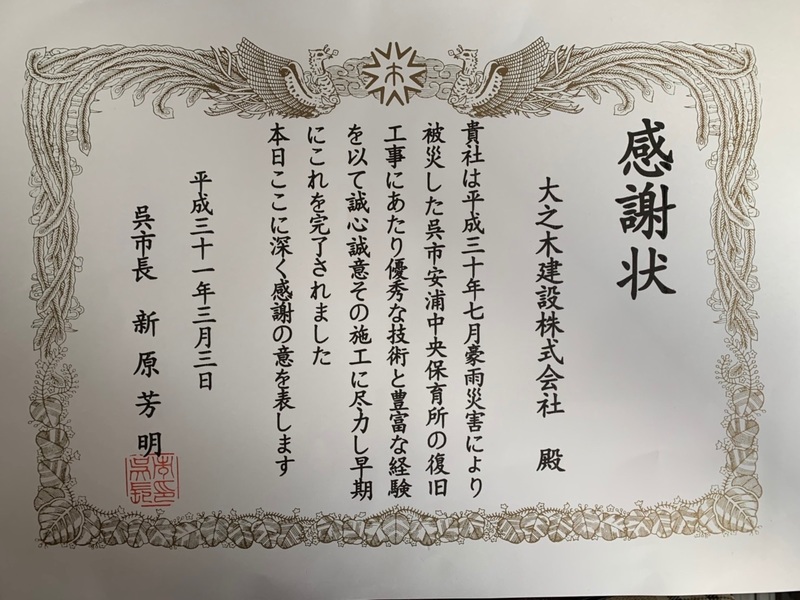 感謝状
大之木建設株式会社 殿
貴社は平成三十年七月豪雨災害により
被災した呉市安浦中央保育所の復旧
工事にあたり優秀な技術と豊富な経験
を以て誠心誠意その施工に尽力し早期
にこれを完了されました
本日ここに深く感謝の意を表します
平成三十一年三月三日
呉市長 新原芳明